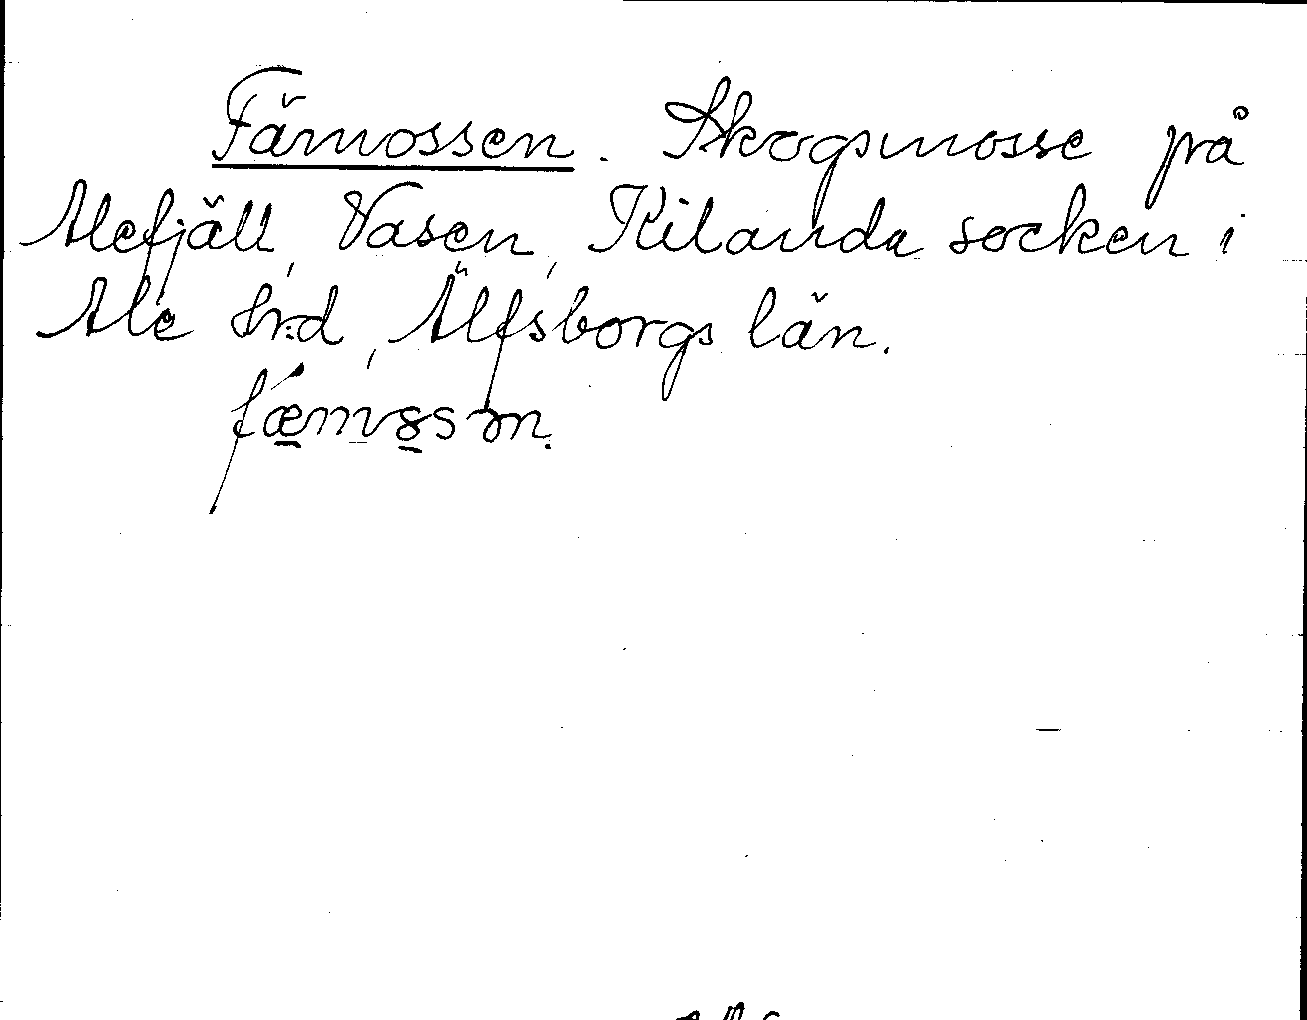 Fämossen. Skogsmosse på
Alefjäll, Vasen, Kilanda socken i
Ale hrd, Älfsborgs län.